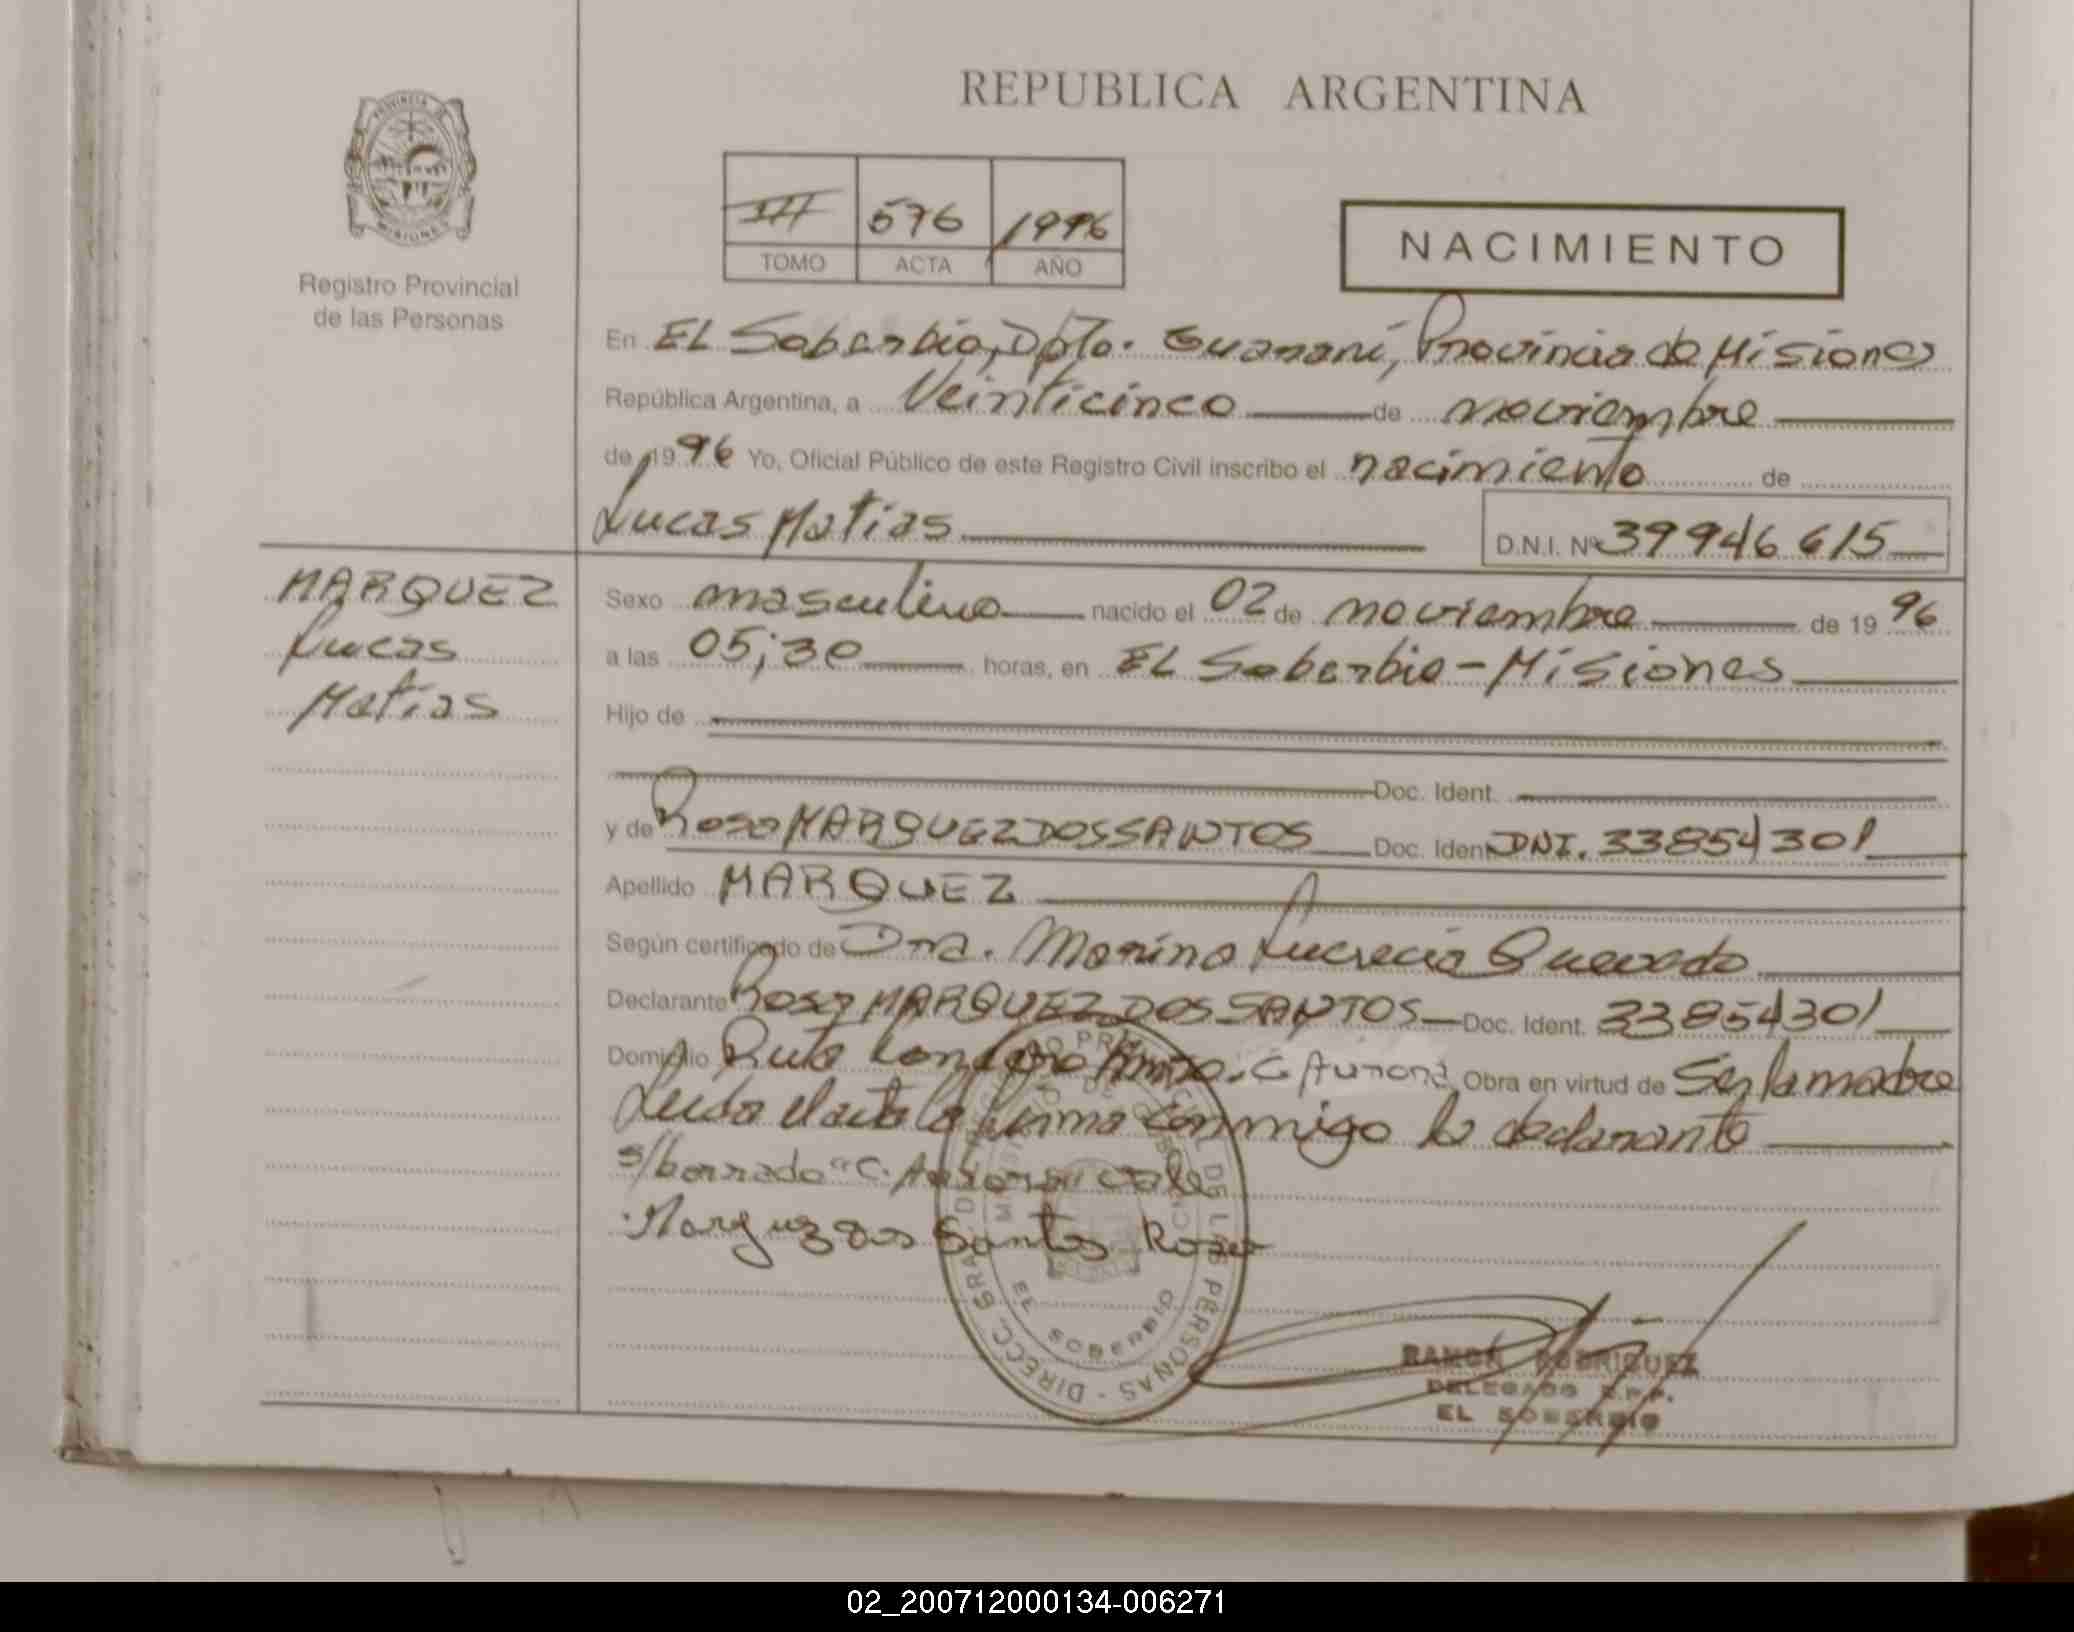 REPUBLICA ARGENTINA
PROVINCIA DE
MISIONES
Registro Provincial
de las Personas
III 576 1996
TOMO ACTA AÑO
NACIMIENTO
En EL Soberbio, Dpto. Guaraní, Provincia de Misiones
República Argentina, a Veinticinco de noviembre
de 1996 Yo, Oficial Público de este Registro Civil inscribo el nacimiento de
Lucas Matias D.N.I. Nº 39946615
MARQUEZ
Lucas
Matias
Sexo masculino nacido el 02 de noviembre de 1996
a las 05;30 horas, en EL Soberbio - Misiones
Hijo de
Doc. Ident.
y de Rosa MARQUEZ DOS SANTOS Doc. Ident. DNI. 33854301
Apellido MARQUEZ
Según certificado de Dra. Marina Lucrecia Quevedo
Declarante Rosa MARQUEZ DOS SANTOS Doc. Ident. 33854301
Domicilio Ruta C Aurora Obra en virtud de Ser la madre
Leida el acta la firma conmigo la declarante
s/borrado "C. Aurora" vale
Marquez dos Santos Rosa
DIRECC. GRAL. DE LAS PERSONAS
EL SOBERBIO
RAMON RODRIGUEZ
DELEGADO R.P.P.
EL SOBERBIO
02_200712000134-006271